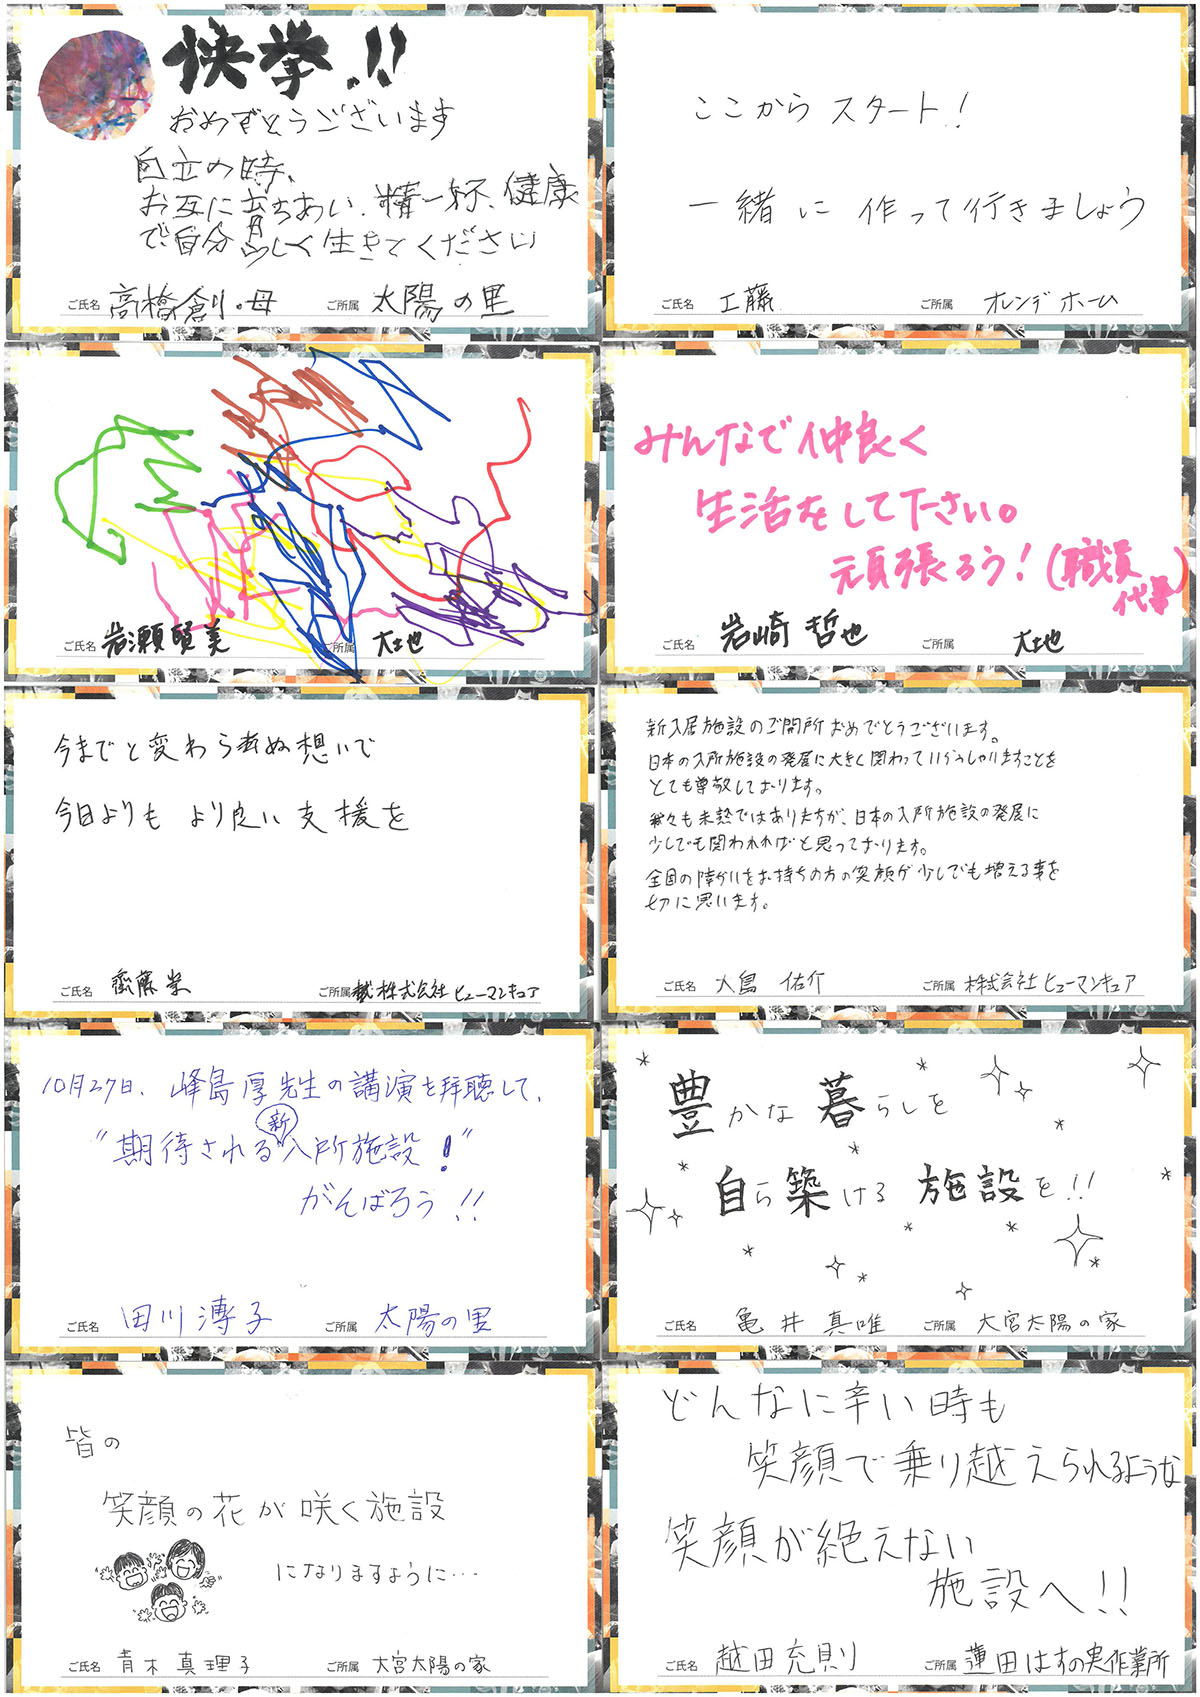 快挙!!
おめでとうございます
自立の時、
お互に育ちあい、精一杯、健康
で自分らしく生きてください
ご氏名 高橋創・母 ご所属 太陽の里
ここから スタート!
一緒に 作って行きましょう
ご氏名 工藤 ご所属 オレンヂホーム
ご氏名 岩瀬賢美 ご所属 大地
みんなで仲良く
生活をして下さい。
頑張ろう!(職員
代筆)
ご氏名 岩崎 哲也 ご所属 大地
今までと変わらぬ想いで
今日よりも より良い支援を
ご氏名 齋藤 ご所属 株式会社ヒューマンキュア
新入居施設のご開所おめでとうございます。
日本の入所施設の発展に大きく関わっていらっしゃいますことを
とても尊敬しております。
我々も未熟ではありますが、日本の入所施設の発展に
少しでも関われればと思っております。
全国の障がいをお持ちの方の笑顔が少しでも増える事を
切に思います。
ご氏名 大島 佑介 ご所属 株式会社ヒューマンキュア
10月27日、峰島厚先生の講演を拝聴して、
新
"期待される入所施設!"
がんばろう!!
ご氏名 田川 子 ご所属 太陽の里
豊かな暮らしを
自ら築ける施設を!!
ご氏名 亀井 真唯 ご所属 大宮太陽の家
皆の
笑顔の花が咲く施設
になりますように…
ご氏名 青木 真理子 ご所属 大宮太陽の家
どんなに辛い時も
笑顔で乗り越えられるような
笑顔が絶えない
施設へ!!
ご氏名 越田充則 ご所属 蓮田はすの実作業所